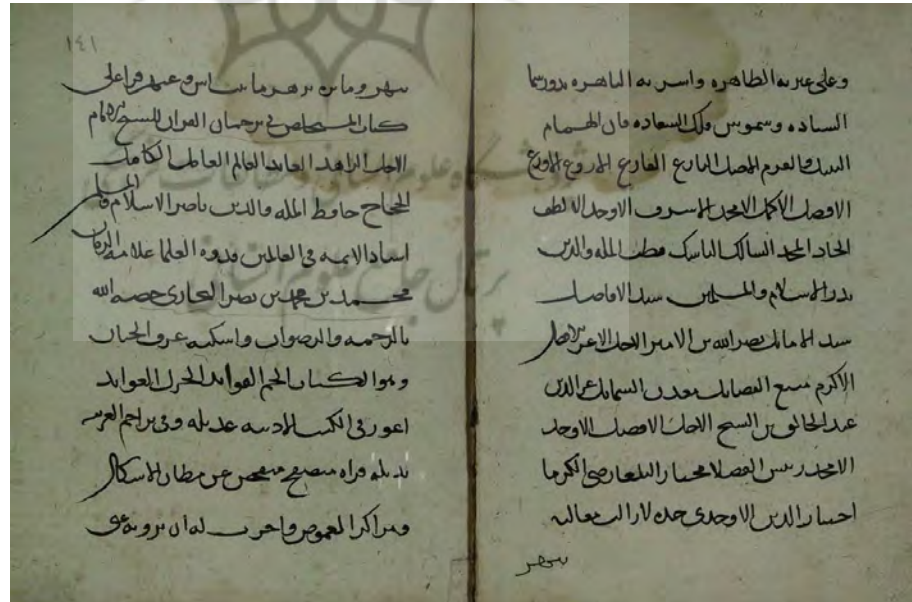 وعلى عترته الطاهره واسرته الباهره بدور سما
السياده وشموس فلك السعاده فان الهمام
المفضل البارع الفارع الاروع الاورع
الافضل الاكمل الامجد الاشرف الاوحد الالطف
الجاد المجد السالك الناسك قطب المله والدين
بدر الاسلام والمسلمين سيد الافاضل
سند الاماثل نصر الله بن الامير الاجل الاعز
الاكرم منبع الفضايل معدن الشمايل عز الدين
عبد الخالق بن الشيخ الاجل الافضل الاوحد
الامجد رئيس الفضلا مختار البلغا رضي الكرما
اختيار الدين الاوحدي جده لا زالت معاليه
تبهر
١٤١
تبهر وماثره تزهر ما قرا علي
كتاب المستخلص في ترجمان القران للشيخ الامام
الاجل الزاهد العابد العالم العامل الكامل
الحجاج حافظ المله والدين ناصر الاسلام والمسلمين
استاد الايمه في العالمين قدوه العلما علامه الزمان
محمد بن محمد بن نصر البخاري خصه الله
بالرحمه والرضوان واسكنه غرف الجنان
وهو الكتاب الجم الفوايد الجزل العوايد
اعوز في الكتب الادبيه عديله وفي تراجم العربيه
بديله قراه متصفح متفحص عن مظان الاشكال
ومراكز الغموض واجزت له ان يرويه عني
پژوهشگاه علوم انسانی و مطالعات فرهنگی
پرتال جامع علوم انسانی